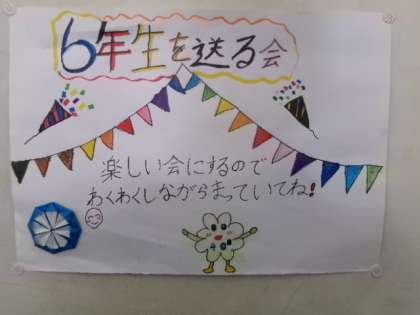 6年生を送る会
楽しい会にするので
わくわくしながらまっていてね!